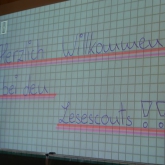 Herzlich willkommen
bei den
Lesescouts!!